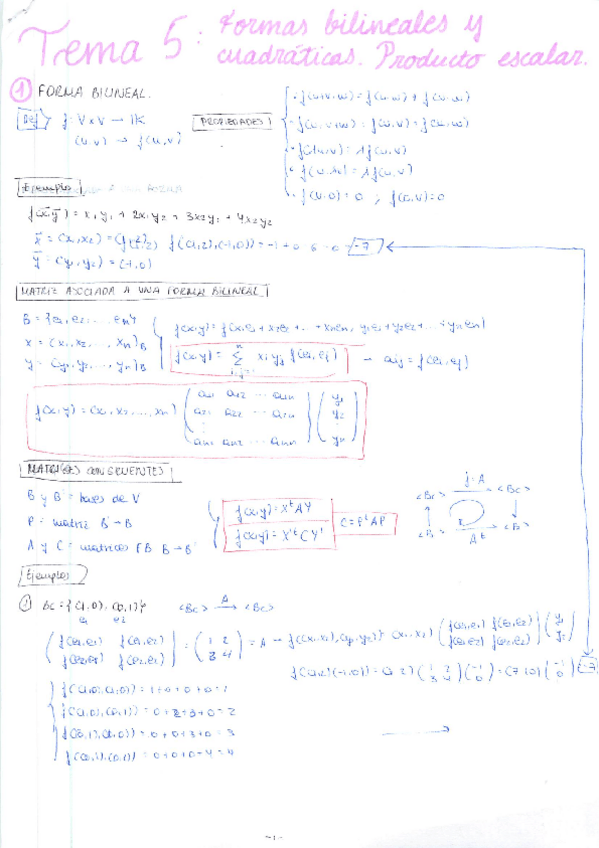 Tema 5: Formas bilineales y
cuadráticas. Producto escalar.
① FORMA BILINEAL.
f: V×V → IK
(u,v) → f(u,v)
PROPIEDADES
· f(u+v,w) = f(u,w) + f(v,w)
· f(u,v+w) = f(u,v) + f(u,w)
· f(λu,v) = λf(u,v)
· f(u,λv) = λf(u,v)
· f(v,0) = 0 ; f(0,v) = 0
Ejemplo
f(x̄,ȳ) = x₁y₁ + 2x₁y₂ + 3x₂y₁ + 4x₂y₂
x̄ = (x₁,x₂) = (1,2)
ȳ = (y₁,y₂) = (-1,0)
-7
MATRIZ ASOCIADA A UNA FORMA BILINEAL
B = {e₁,e₂,...,eₙ}
x = (x₁,x₂,...,xₙ)B
y = (y₁,y₂,...,yₙ)B
f(x,y) = f(x₁e₁+x₂e₂+...+xₙeₙ, y₁e₁+y₂e₂+...+yₙeₙ)
f(x,y) = Σ xᵢyⱼ f(eᵢ,eⱼ) → aᵢⱼ = f(eᵢ,eⱼ)
f(x,y) = (x₁,x₂,...,xₙ)
a₁₁ a₁₂ ... a₁ₙ
a₂₁ a₂₂ ... a₂ₙ
aₙ₁ aₙ₂ ... aₙₙ
y₁
y₂
yₙ
MATRICES CONGRUENTES
B y B' = bases de V
P = matriz B' → B
A y C = matrices
f(x,y) = XᵗAY
f(x,y) = X'ᵗCY'
C = PᵗAP
<Bc> → <Bc>
<B> → <B>
Ejemplos
① Bc = {(1,0),(0,1)}
e₁ e₂
<Bc> A→ <Bc>
f(e₁,e₁) f(e₁,e₂)
f(e₂,e₁) f(e₂,e₂)
= 1 2
3 4
= A → f((x₁,x₂),(y₁,y₂)) = (x₁,x₂)
f(e₁,e₁) f(e₁,e₂)
f(e₂,e₁) f(e₂,e₂)
y₁
y₂
f((1,2)(-1,0)) = (1 2)
1 2
3 4
-1
0
= (7 10)
-1
0
-7
f((1,0),(1,0)) = 1+0+0+0 = 1
f((1,0),(0,1)) = 0+2+0+0 = 2
f((0,1),(1,0)) = 0+0+3+0 = 3
f((0,1),(0,1)) = 0+0+0+4 = 4
-1-